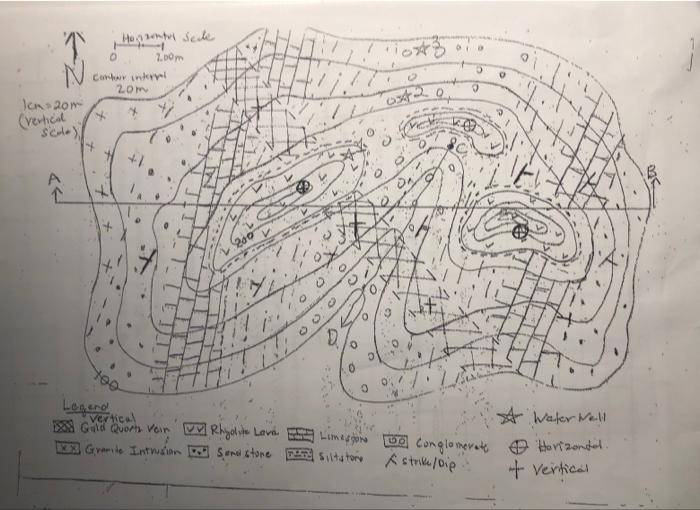 Horizontal Scale
0 200m
N
Contour interval
20m
1cm=20m
(vertical
scale)
3
2
C
A
B
200
D
100
Legend
Vertical
Gold Quartz Vein
Rhyolite Lava
Limestone
Conglomerate
Water Well
Granite Intrusion
Sandstone
Siltstone
Strike/Dip
Horizondal
Vertical